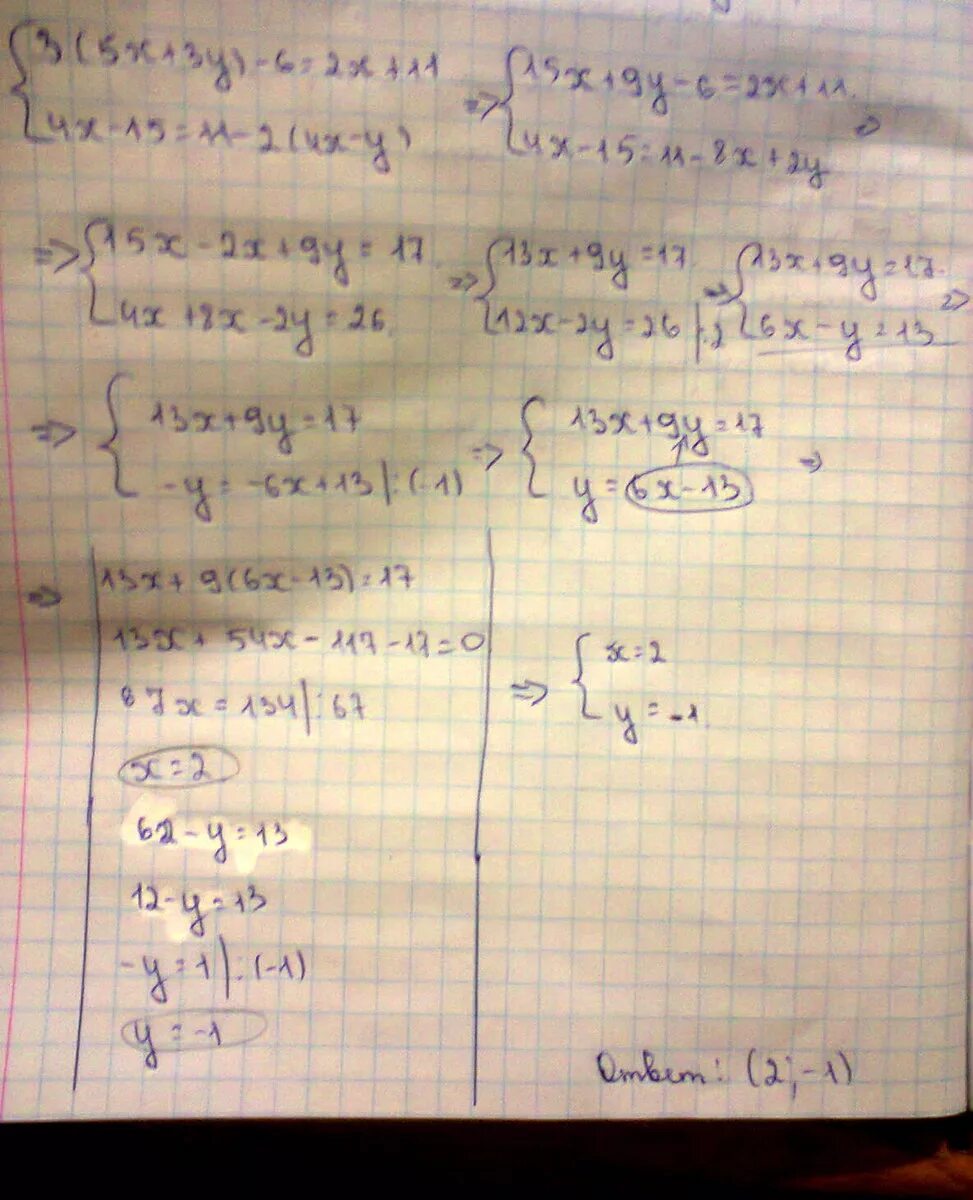 {3(5x+3y)-6=2x+11
{4x-15=11-2(4x-y)
=> {15x+9y-6=2x+11.
{4x-15=11-8x+2y =>
=> {15x-2x+9y=17.
{4x+8x-2y=26.
=> {13x+9y=17.
{12x-2y=26 |:2
=> {13x+9y=17.
{6x-y=13 =>
=> {13x+9y=17
{-y=-6x+13 |:(-1)
=> {13x+9y=17
{y=6x-13 =>
=> 13x+9(6x-13)=17
13x+54x-117-17=0
87x=134 |:67
x=2
6x-y=13
12-y=13
-y=1 |:(-1)
y=-1
=> {x=2
{y=-1
Ответ: (2;-1)